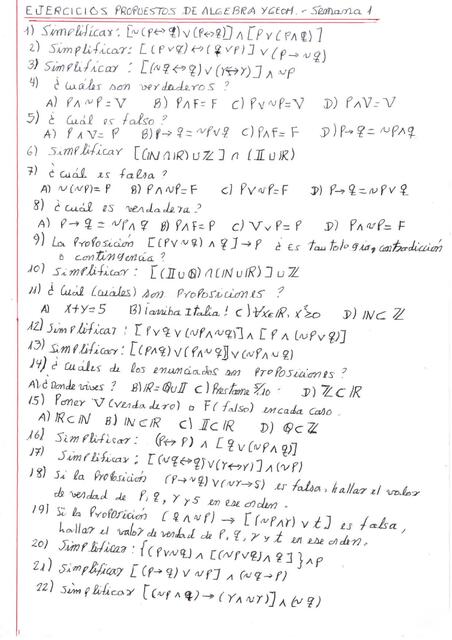 EJERCICIOS PROPUESTOS DE ALGEBRA Y GEOM. - Semana 1
1) Simplificar: [~(P↔q)∨(P↔q)]∧[P∨(P∧q)]
2) Simplificar: [(P∨q)↔(q∨P)]∨(P→~q)
3) Simplificar: [(~q↔q)∨(r↔r)]∧~P
4) ¿Cuáles son verdaderos?
A) P∧~P=V B) P∧F=F C) P∨~P=V D) P∧V=V
5) ¿Cuál es falso?
A) P∧V=P B) P→q=~P∨q C) P∧F=F D) P→q=~P∧q
6) Simplificar [(ℕ∩ℝ)∪ℤ]∩(𝕀∪ℝ)
7) ¿Cuál es falsa?
A) ~(~P)=P B) P∧~P=F C) P∨~P=F D) P→q=~P∨q
8) ¿Cuál es verdadera?
A) P→q=~P∧q B) P∧F=P C) V∨P=P D) P∧~P=F
9) La Proposición [(P∨~q)∧q]→P ¿Es tautología, contradicción
o contingencia?
10) Simplificar: [(𝕀∪ℚ)∩(ℕ∪ℝ)]∪ℤ
11) ¿Cuál (cuáles) son Proposiciones?
A) x+y=5 B) ¡arriba Italia! C) ∀x∈ℝ, x²≥0 D) ℕ⊂ℤ
12) Simplificar: [P∨q∨(~P∧~q)]∧[P∧(~P∨q)]
13) Simplificar: [(P∧q)∨(P∧~q)]∨(~P∧~q)
14) ¿Cuáles de los enunciados son Proposiciones?
A) ¿Donde vives? B) ℝ=ℚ∪𝕀 C) Prestame S/.10 D) ℤ⊂ℝ
15) Poner V(verdadero) o F(falso) en cada caso.
A) ℝ⊂ℕ B) ℕ⊂ℝ C) 𝕀⊂ℝ D) ℚ⊂ℤ
16) Simplificar: (P↔P)∧[q∨(~P∧q)]
17) Simplificar: [(~q↔q)∨(r↔r)]∧(~P)
18) Si la Proposición (P→~q)∨(~r→s) es falsa, hallar el valor
de verdad de P, q, r y s en ese orden.
19) Si la Proposición (q∧~P)→[(~P∧r)∨t] es falsa,
hallar el valor de verdad de P, q, r y t en ese orden.
20) Simplificar: {(P∨~q)∧[(~P∨~q)∧q]}∧P
21) Simplificar [(P→q)∨~P]∧(~q→P)
22) Simplificar [(~P∧q)→(r∧~r)]∧(~q)